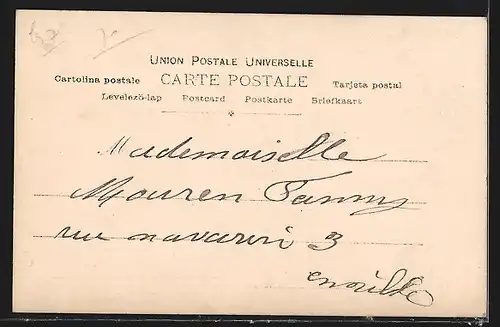 UNION POSTALE UNIVERSELLE
Cartolina postale CARTE POSTALE Tarjeta postal
Levelező-lap Postcard Postkarte Briefkaart
Mademoiselle
Mouren Fanny
rue navarin 3
en ville